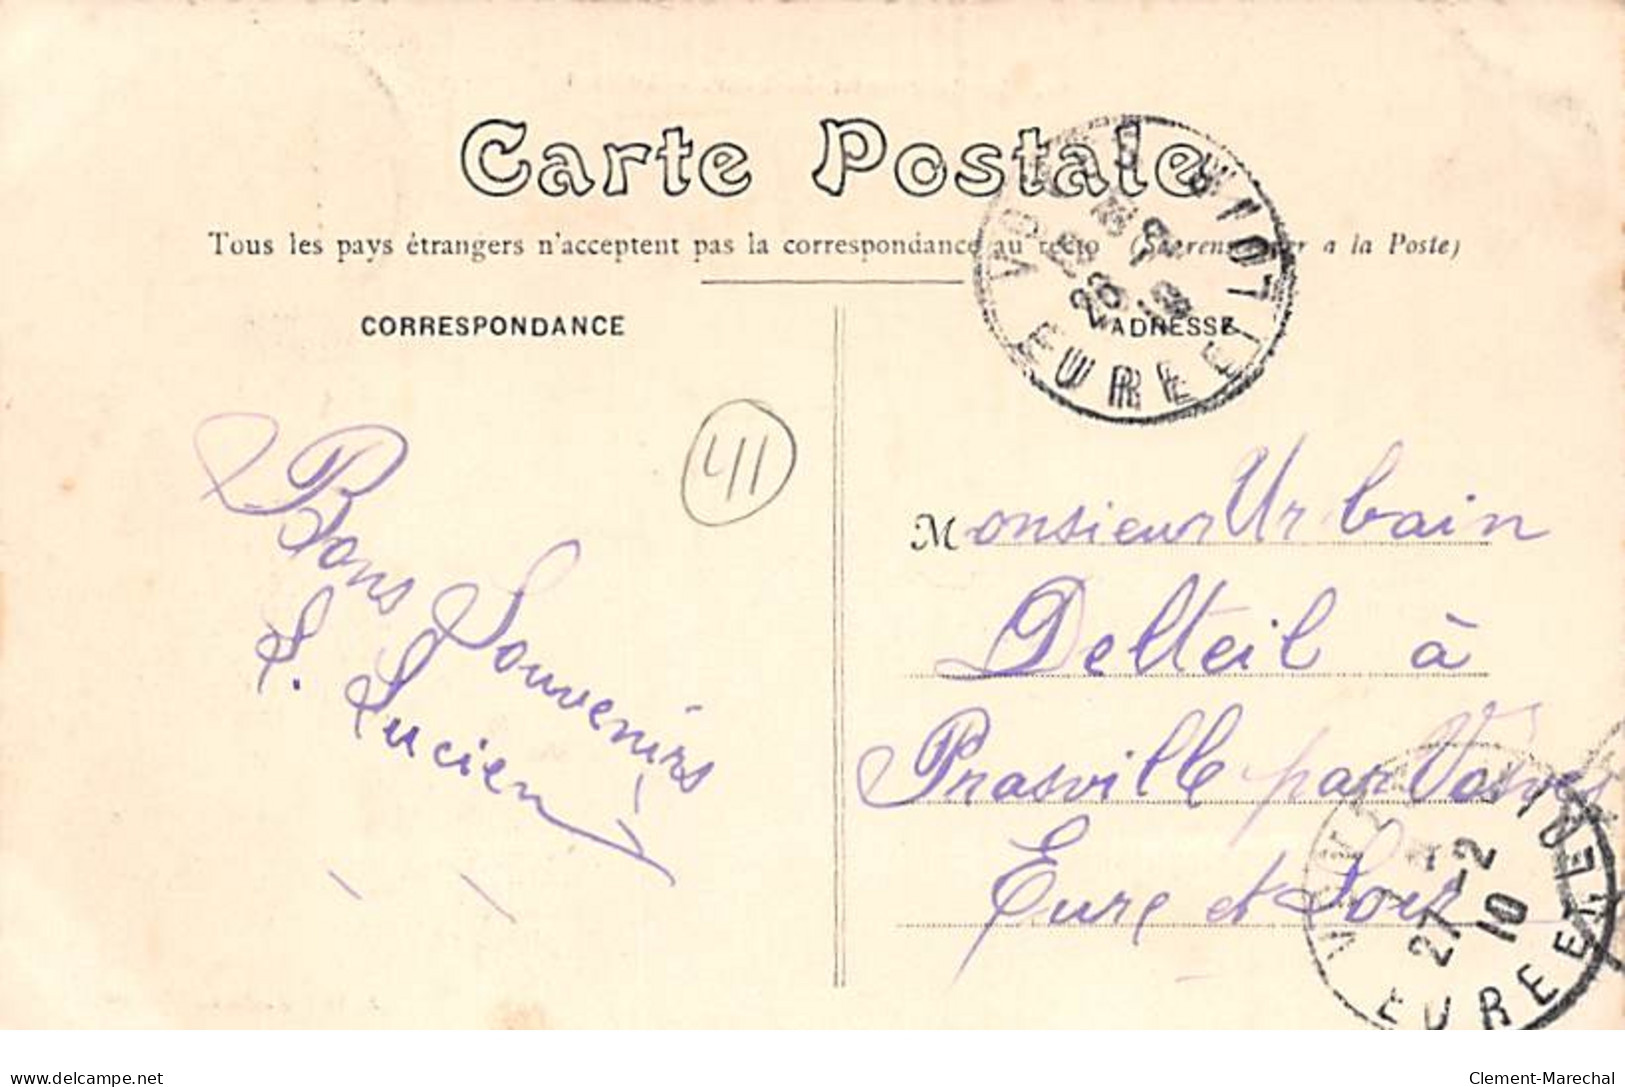 Carte Postale
Tous les pays étrangers n'acceptent pas la correspondance au recto (Se renseigner a la Poste)
CORRESPONDANCE
ADRESSE
41
Bons Souvenirs
L. Lucien
Monsieur Urbain
Delteil à
Prasville par Voves
Eure et Loir
EURE ET LOIR
26
27-2
10
EURE ET LOIR
delcampe.net
Clement-Marechal